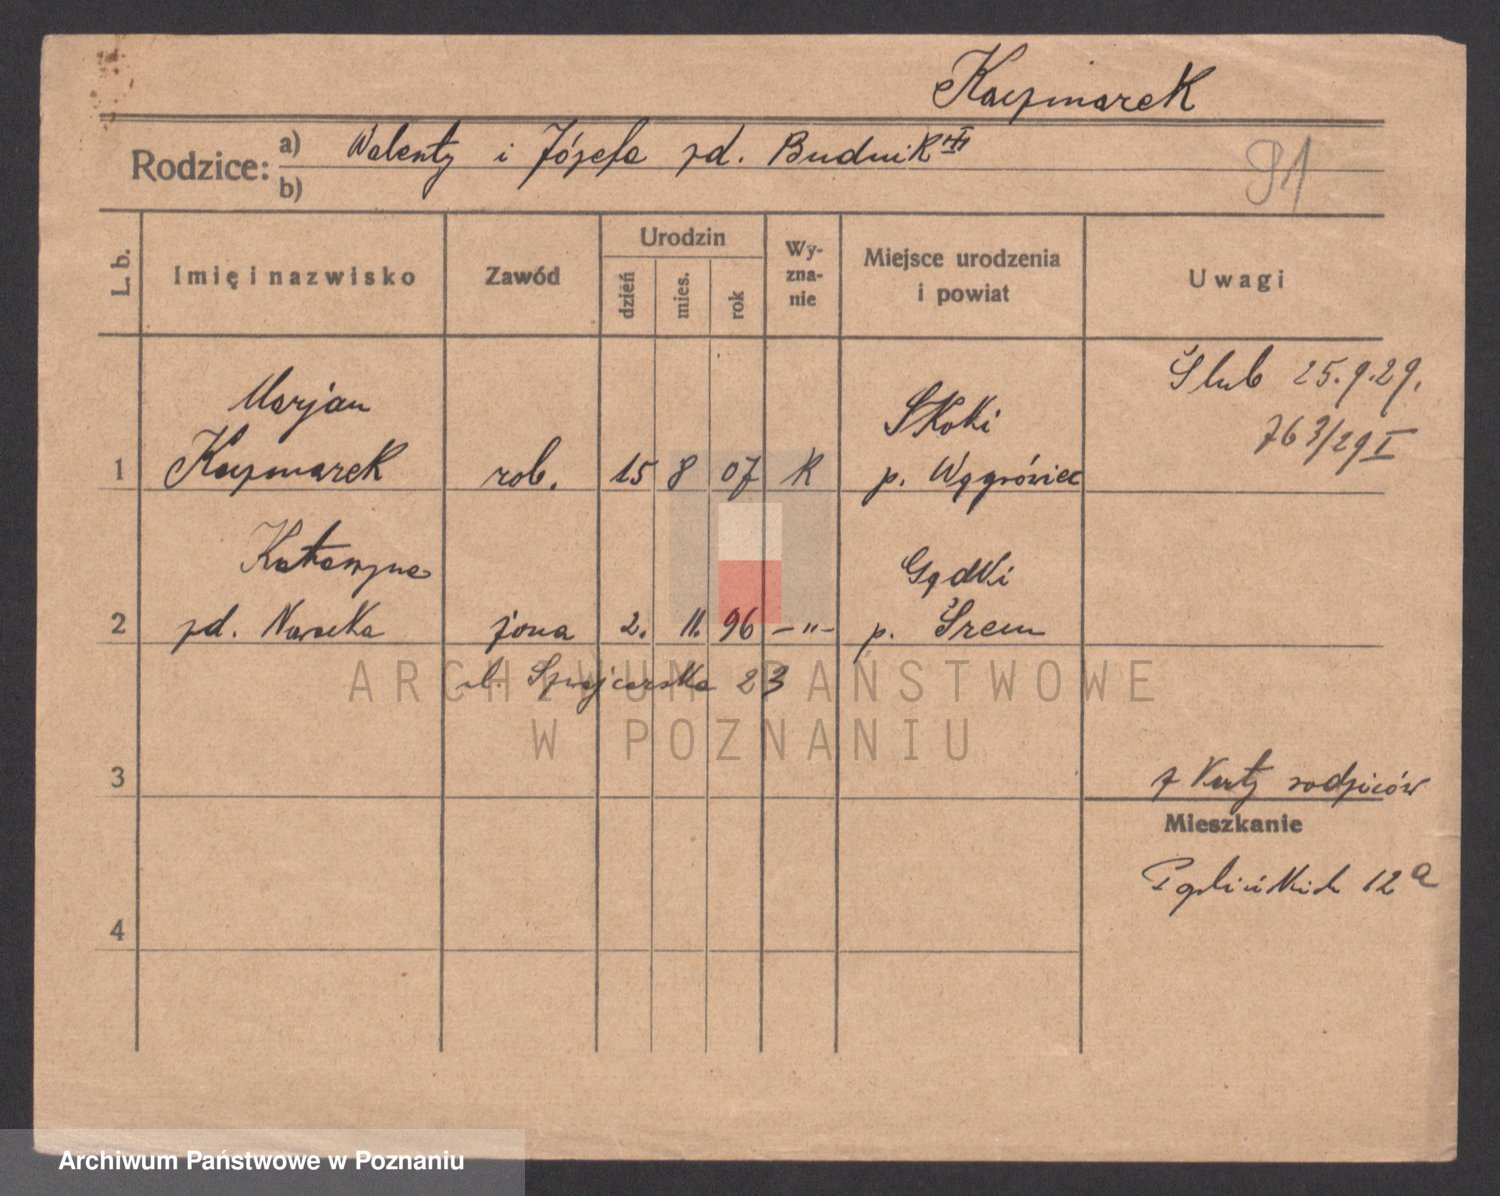 Kaczmarek
Rodzice: a) Walenty i Józefa zd. Budnik
b)
91
L. b.
Imię i nazwisko
Zawód
Urodzin
dzień
mies.
rok
Wy-
zna-
nie
Miejsce urodzenia
i powiat
Uwagi
Marjan
Kaczmarek
1 rob. 15 8 07 k
Skoki
p. Wągrówiec
Ślub 25.9.29.
763/29 I
Katarzyna
2 zd. Nawacka żona 2. 11. 96 —"—
Gądki
p. Śrem
ul. Szwajcarska 23
ARCHIWUM PAŃSTWOWE
W POZNANIU
3
z karty rodziców
Mieszkanie
12a
4
Archiwum Państwowe w Poznaniu